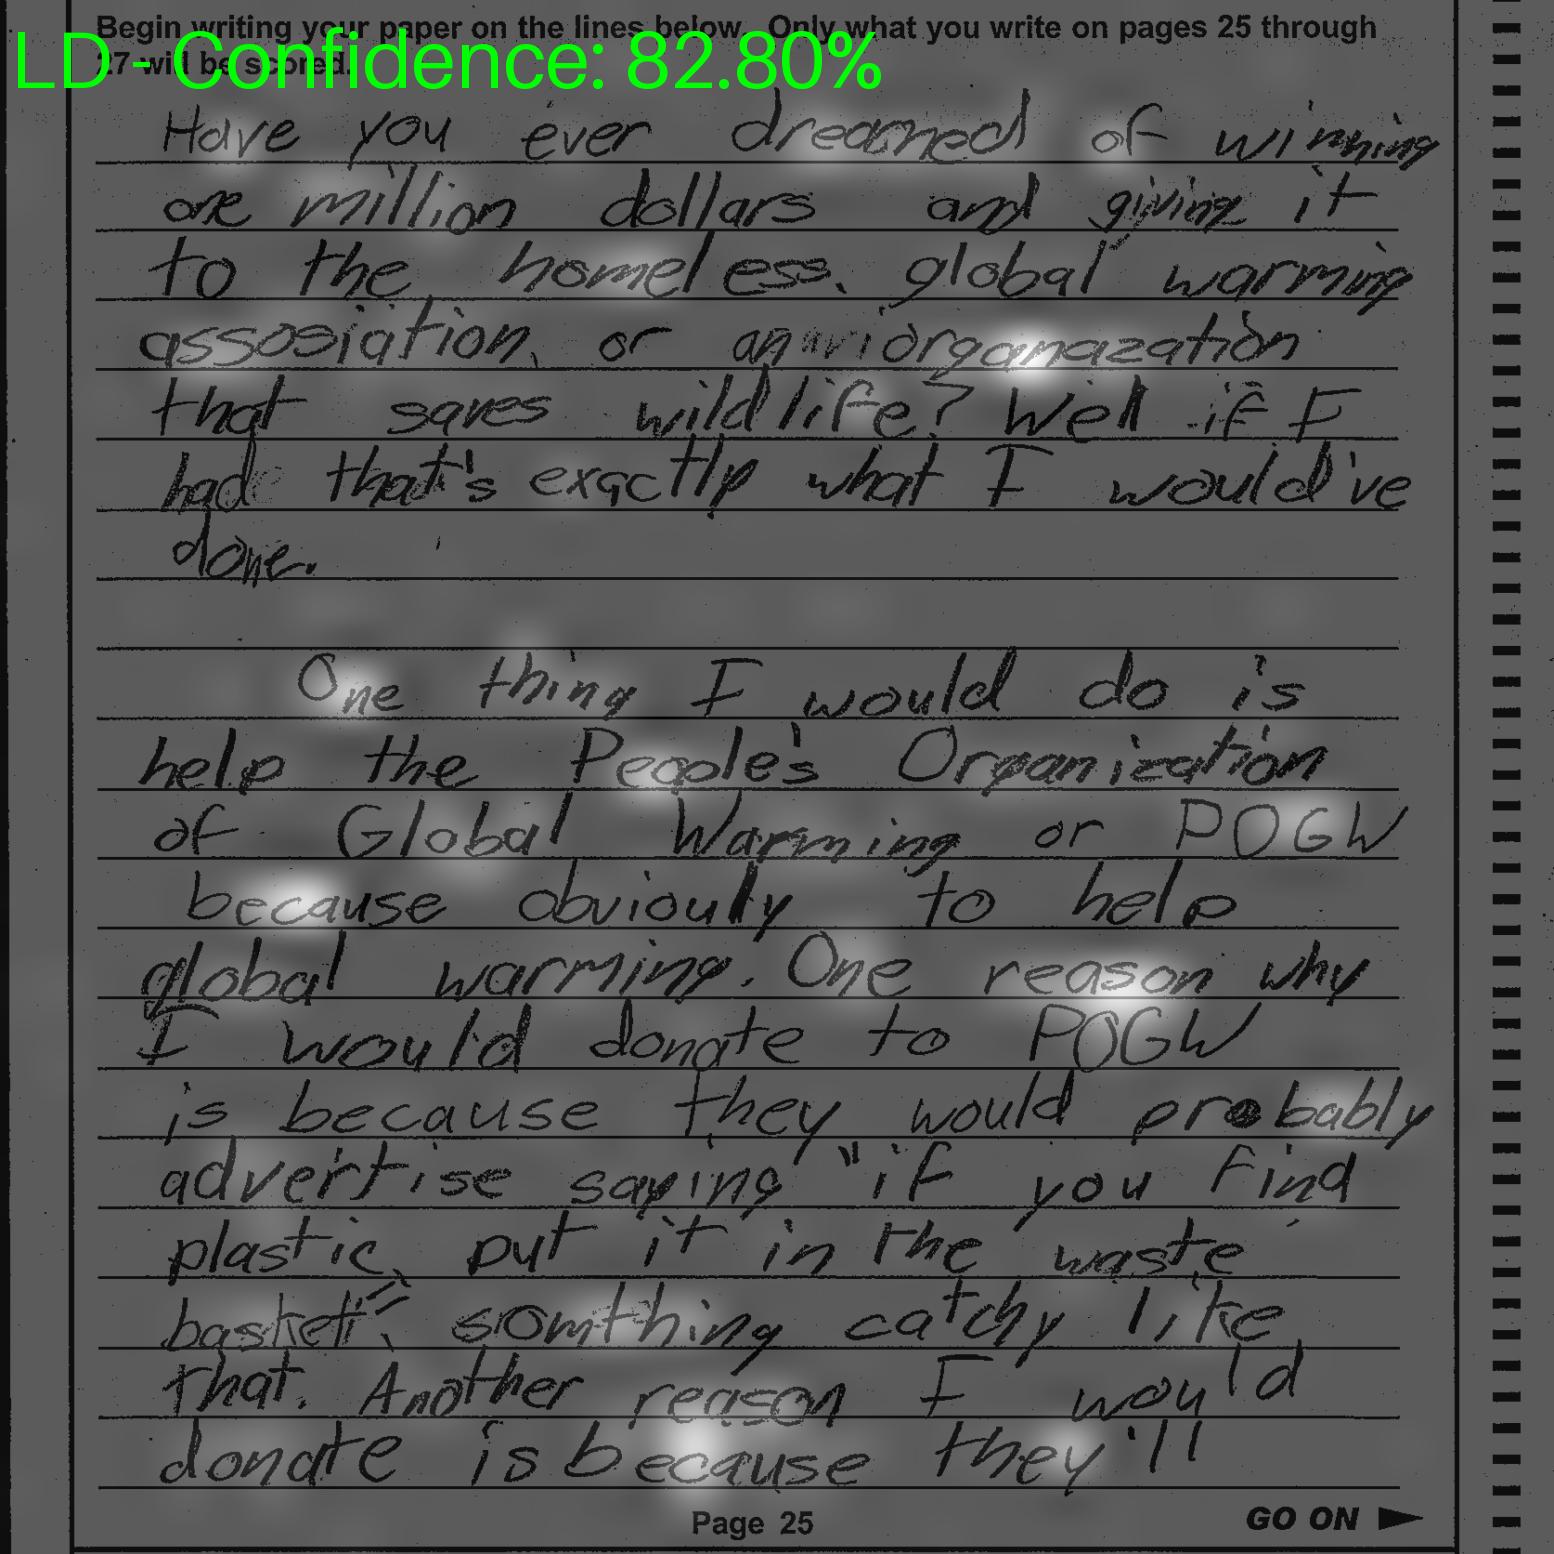 Begin writing your paper on the lines below. Only what you write on pages 25 through
27 will be scored.
LD - Confidence: 82.80%
Have you ever dreamed of winning
one million dollars and giving it
to the homeless, global warming
assosiation, or an organazation
that saves wildlife? Well if I
had that's exactly what I would've
done.
One thing I would do is
help the People's Organization
of Global Warming or POGW
because obviouly to help
global warming. One reason why
I would donate to POGW
is because they would probably
advertise saying "if you find
plastic, put it in the waste
basket", somthing catchy like
that. Another reason I would
donate is because they'll
Page 25
GO ON